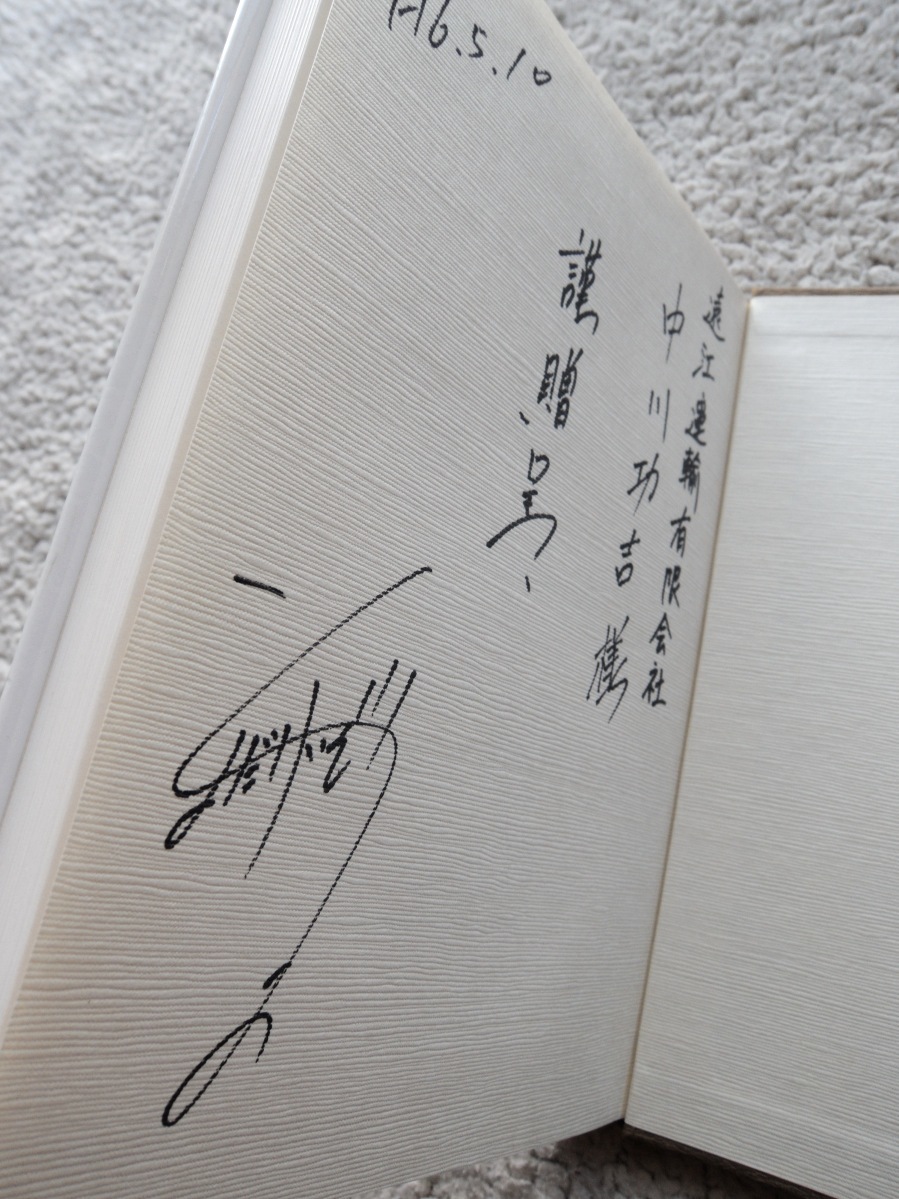 遠江運輸有限会社
中川功吉様
謹贈呈、
H6.5.10